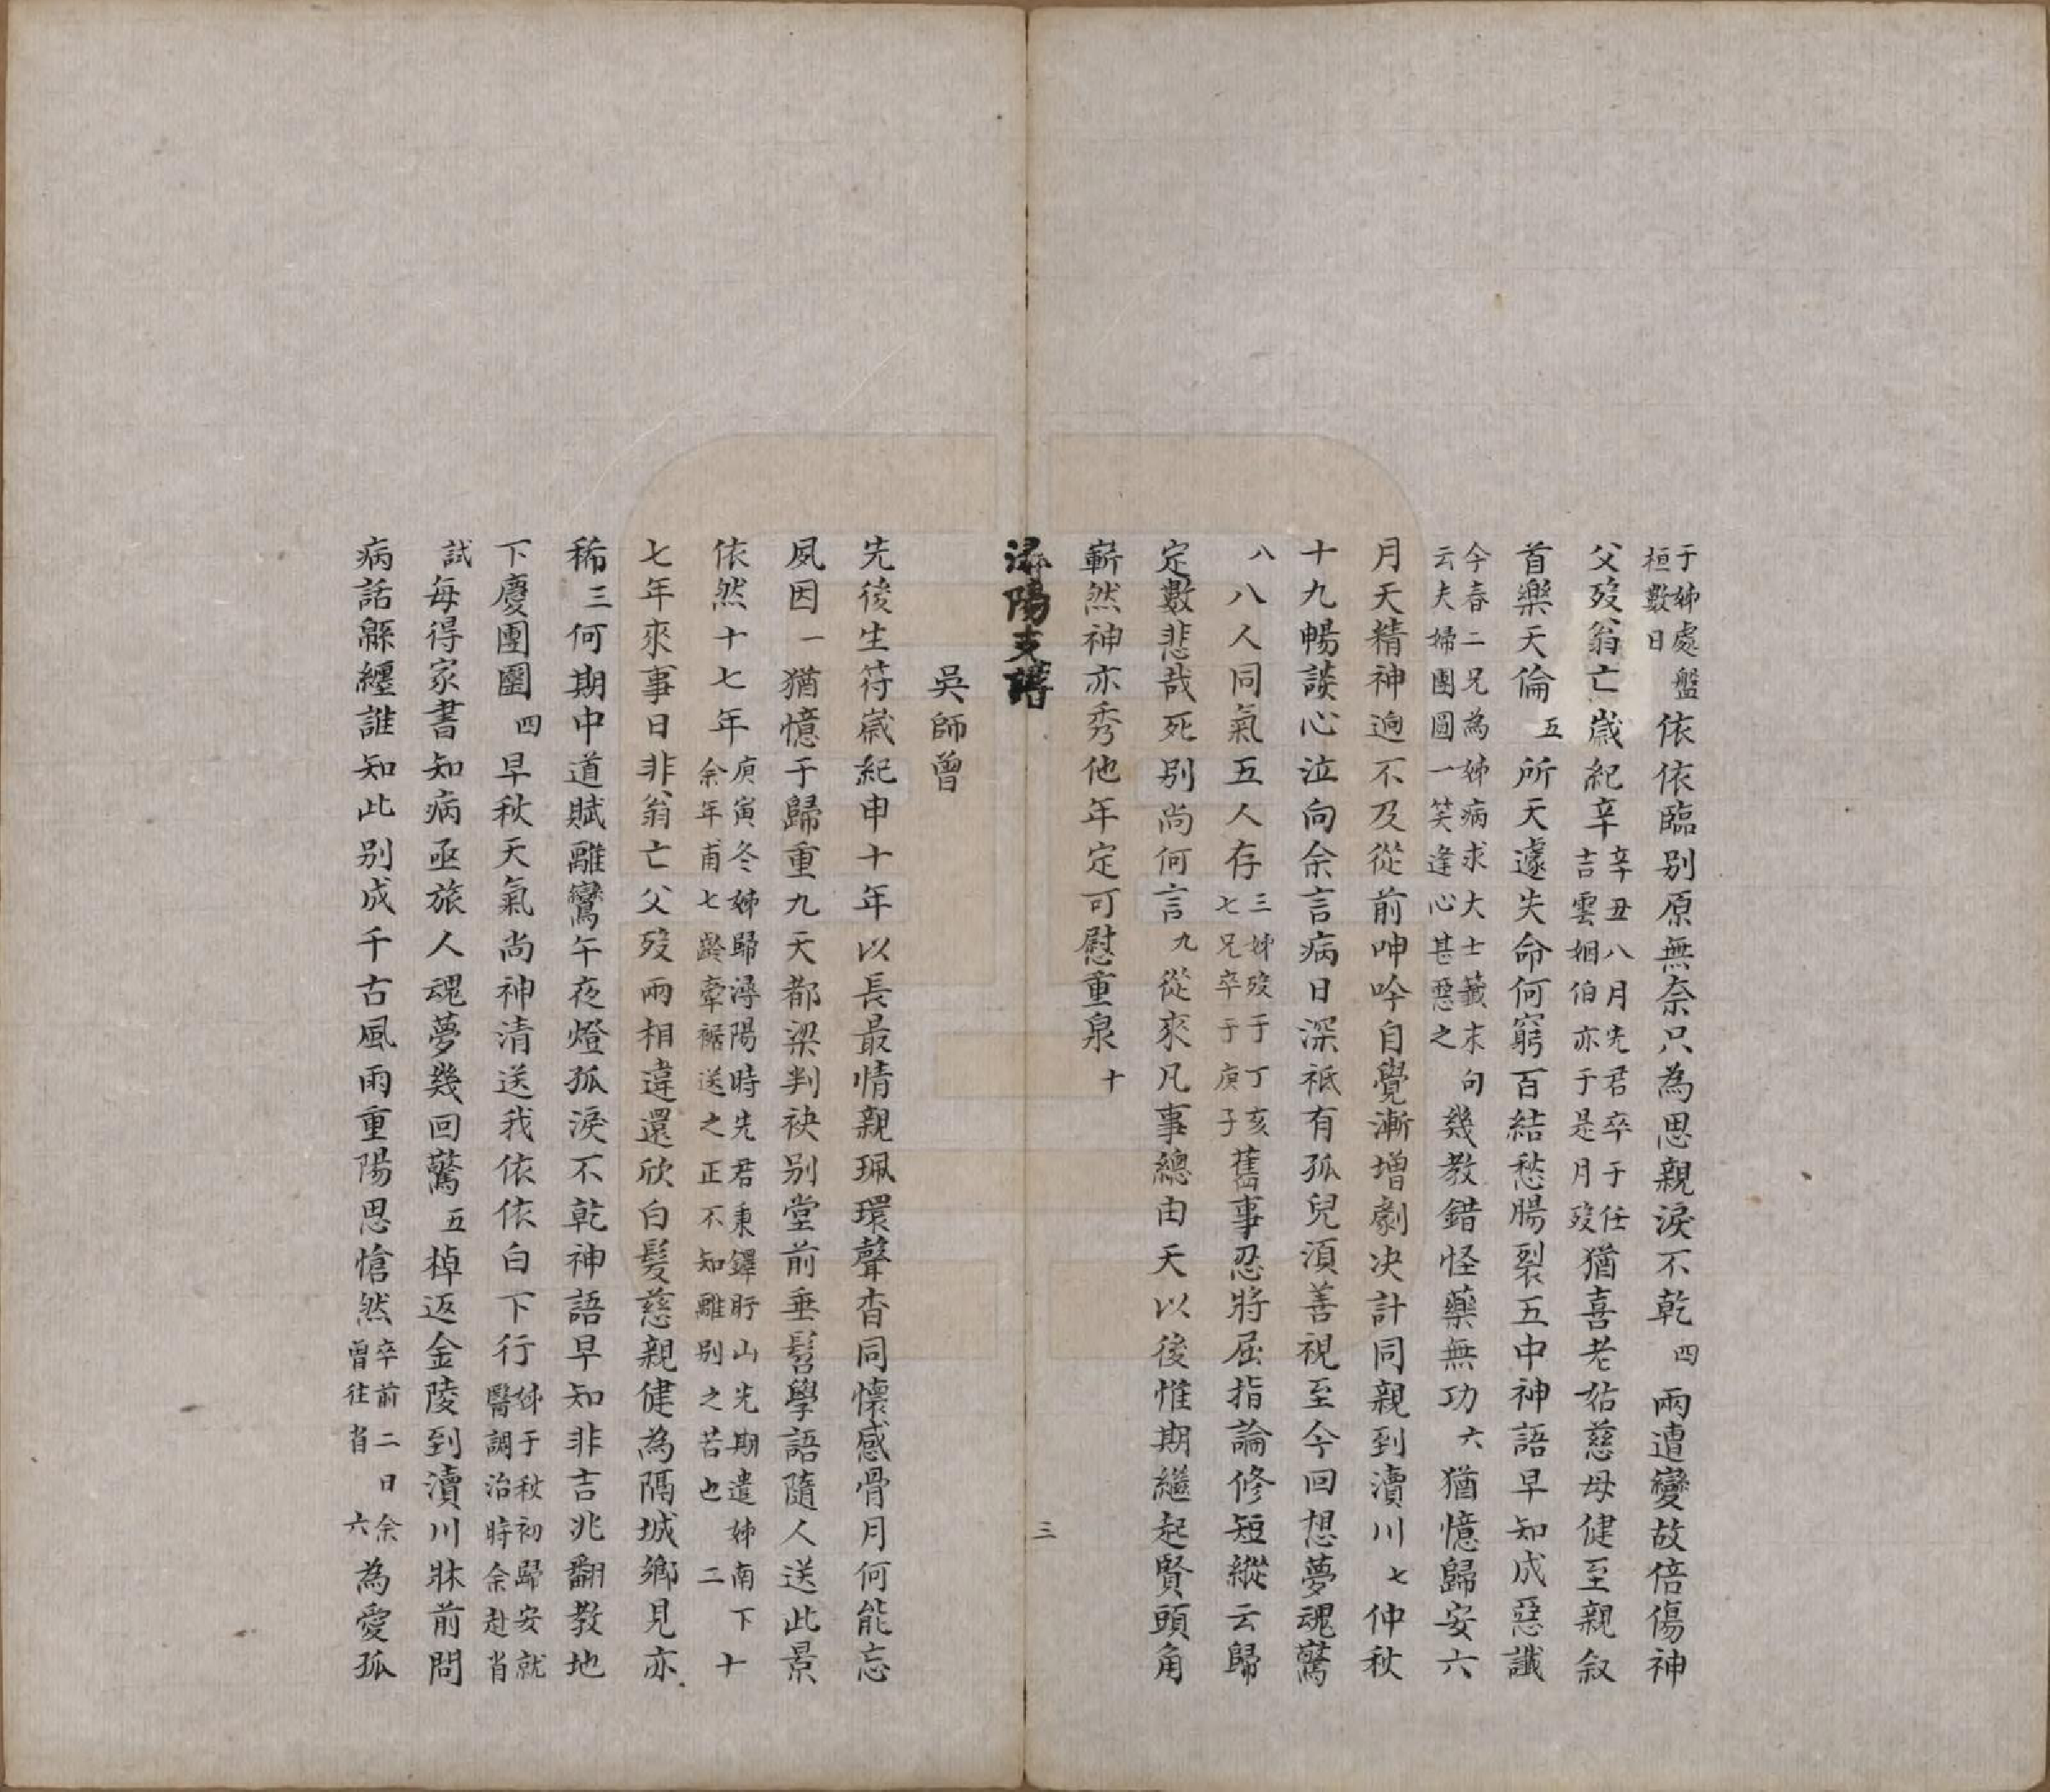 于姊處盤
桓數日
依依臨别原無奈只為思親淚不乾四兩遭變故倍傷神
父歿翁亡歲紀辛
辛丑八月先君卒于任
吉雲姻伯亦于是月歿
猶喜老姑慈母健至親敘
首樂天倫五所天遽失命何窮百結愁腸裂五中神語早知成惡讖
今春二兄為姊病求大士籤末句
云夫婦團圓一笑逢心甚惡之
幾教錯怪藥無功六猶憶歸安六
月天精神逈不及從前呻吟自覺漸增劇决計同親到瀆川七仲秋
十九暢談心泣向余言病日深祗有孤兒湏善視至今回想夢魂驚
八八人同氣五人存
三姊歿于丁亥
七兄卒于庚子
舊事忍將屈指論修短縱云歸
定數悲哉死别尚何言九從來凡事總由天以後惟期繼起賢頭角
嶄然神亦秀他年定可慰重泉十
潯陽支譜
三
吳師曾
先後生符歲紀申十年以長最情親珮環聲杳同懷感骨月何能忘
夙因一猶憶于歸重九天都梁判袂别堂前垂髫學語隨人送此景
依然十七年
庚寅冬姊歸潯陽時先君秉鐸盱山先期遣姊南下
余年甫七齡牽裾送之正不知離别之苦也
二十
七年來事日非翁亡父歿兩相違還欣白髮慈親健為隔城鄉見亦
稀三何期中道賦離鸞午夜燈孤淚不乾神語早知非吉兆翻教地
下慶團圞四早秋天氣尚神清送我依依白下行
姊于秋初歸安就
醫調治時余赴省
試
每得家書知病亟旅人魂夢幾回驚五棹返金陵到瀆川牀前問
病話緜纏誰知此别成千古風雨重陽思愴然
卒前二日余
曾往省
六為愛孤